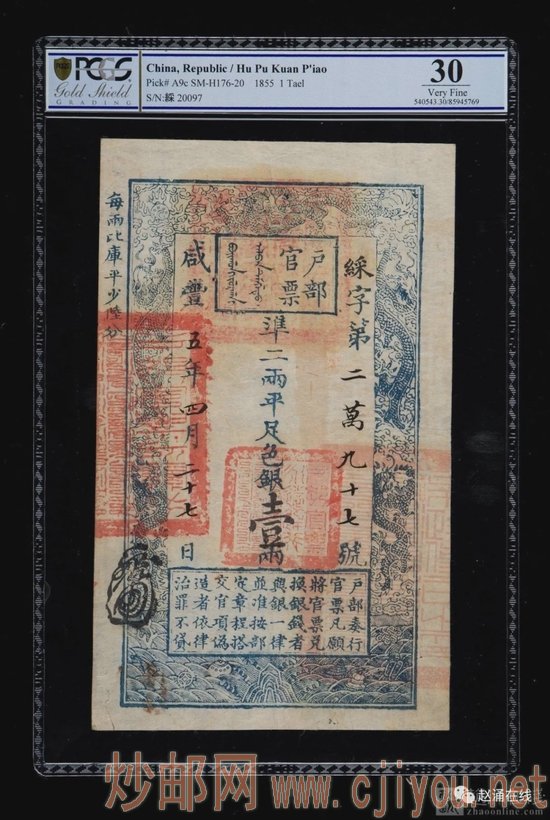 PCGS
Gold Shield
GRADING
China, Republic / Hu Pu Kuan P'iao
Pick# A9c SM-H176-20 1855 1 Tael
S/N:綵 20097
30
Very Fine
540543.30/85945769
戶部
官票
綵字第二萬九十七號
準二兩平足色銀壹兩
咸豐五年四月二十七日
每兩比庫平少陸分
戶部奏行
官票凡願
將官票兌
換銀錢者
與銀一律
並准按部
定章程搭
交官項偽
造者依律
治罪不貸
炒邮网 www.cjiyou.net
赵涌在线
zhaoonline.com